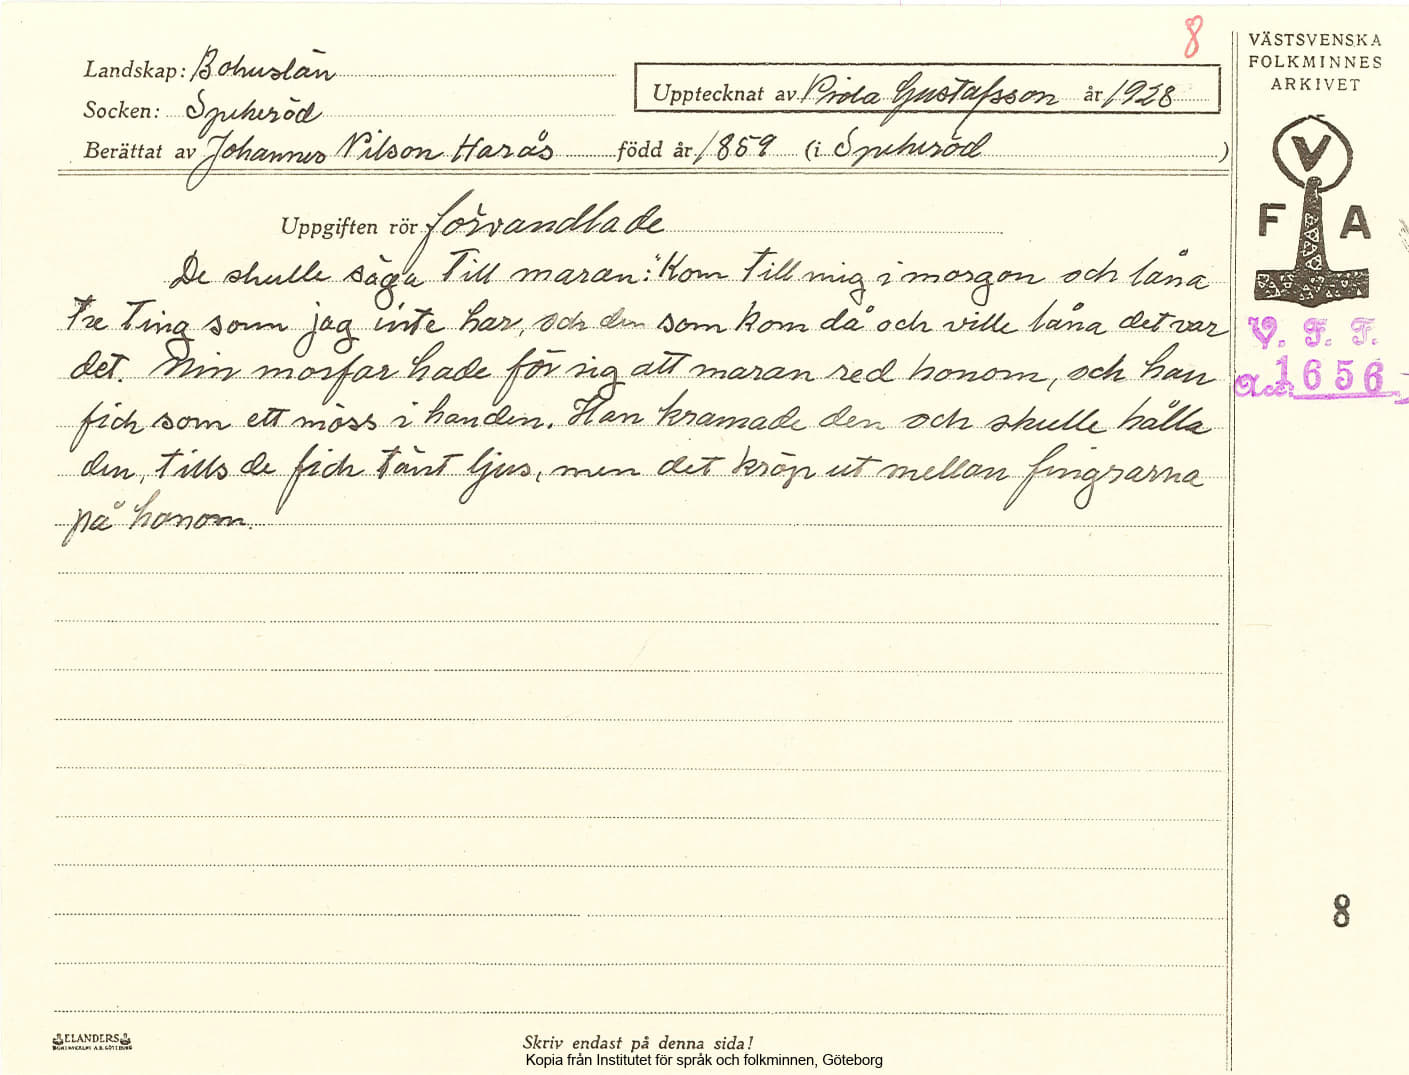 8
Landskap: Bohuslän
Socken: Spekeröd
Upptecknat av Viola Gustafsson år 1928
Berättat av Johannes Nilson Harås född år 1859 (i Spekeröd )
Uppgiften rör förvandlade
De skulle säga till maran: "Kom till mig i morgon och låna
tre ting som jag inte har, och den som kom då och ville låna det var
det. Min morfar hade för sig att maran red honom, och han
fick som ett moss i handen. Han kramade den och skulle hålla
den, tills de fick tänt ljus, men det kröp ut mellan fingrarna
på honom.
VÄSTSVENSKA
FOLKMINNES
ARKIVET
V
F A
V. F. F.
Acc. 1656
8
ELANDERS
Skriv endast på denna sida!
Kopia från Institutet för språk och folkminnen, Göteborg